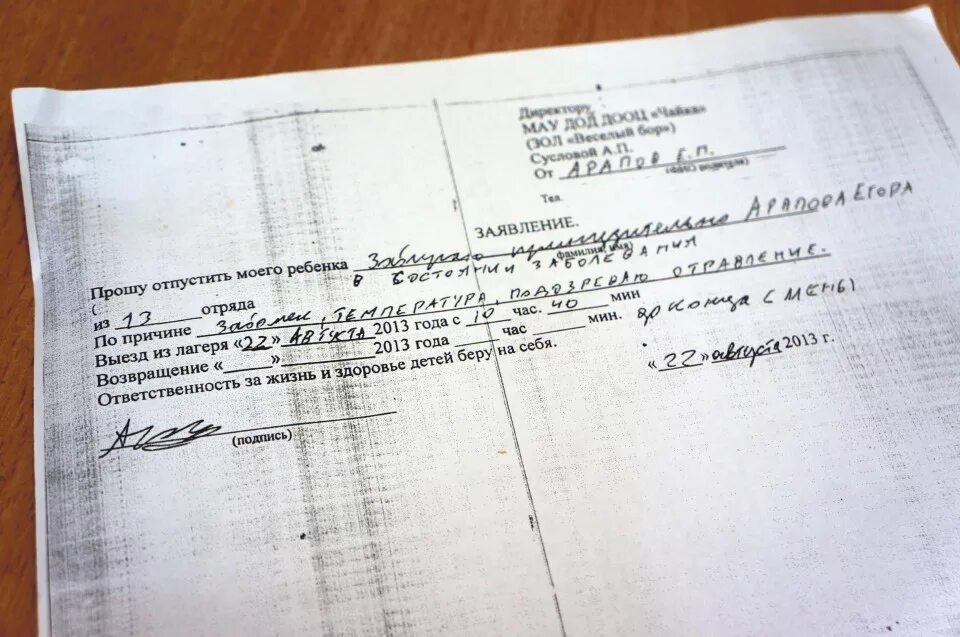 Директору
МАУ ДОЛ ДООЦ «Чайка»
(ЗОЛ «Веселый бор»)
Сусловой А.П.
От АРАПОВ Е.П.
(ФИО родителя)
Тел.
ЗАЯВЛЕНИЕ.
Прошу отпустить моего ребенка Забираю принудительно АРАПОВА ЕГОРА
(фамилия, имя)
В СОСТОЯНИИ ЗАБОЛЕВАНИЯ
(
из 13 отряда
По причине Заболел, ТЕМПЕРАТУРА, ПОДОЗРЕВАЮ ОТРАВЛЕНИЕ.
Выезд из лагеря «22» АВГУСТА 2013 года с 10 час. 40 мин до конца СМЕНЫ
Возвращение «____» ________ 2013 года ____ час ____ мин.
Ответственность за жизнь и здоровье детей беру на себя.
«22» августа 2013 г.
(подпись)